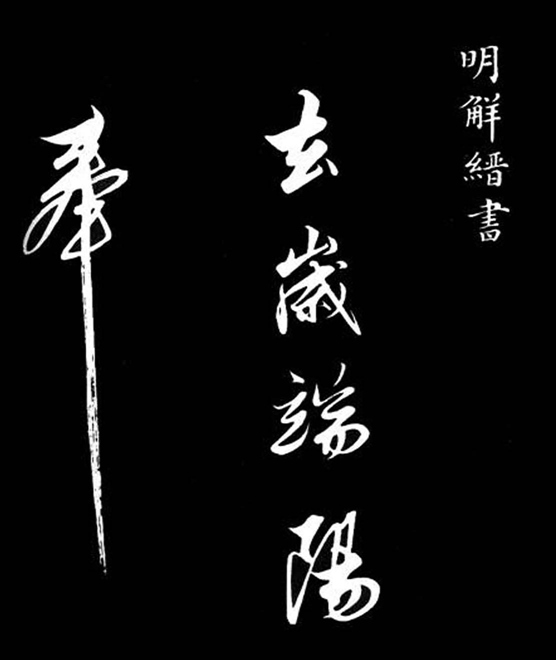 明解縉書
去歲端陽
奉